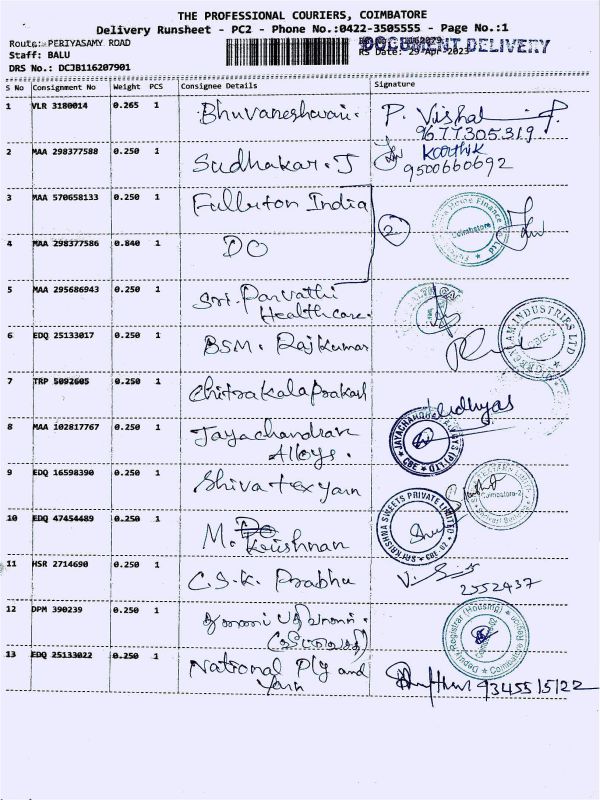 THE PROFESSIONAL COURIERS, COIMBATORE
Delivery Runsheet - PC2 - Phone No.:0422-3505555 - Page No.:1
Route: PERIYASAMY ROAD
DOCUMENT DELIVERY
Staff: BALU
RS Date: 29-Apr-2023
DRS No.: DCJB116207901
S No Consignment No Weight PCS Consignee Details Signature
1 VLR 3180014 0.265 1 Bhuvaneshwari. P. Vishal
9677305319
2 MAA 298377588 0.250 1 Sudhakar. J Karthik
9500660692
3 MAA 570658133 0.250 1 Fullerton India
2
Home Finance
Coimbatore
Ltd
4 MAA 298377586 0.840 1 DO
5 MAA 295686943 0.250 1 Sri. Parvathi
Healthcare.
6 EDQ 25133017 0.250 1 BSM. Rajkumar
INDUSTRIES LTD
CBE-2
7 TRP 5092605 0.250 1 Chitrakala Prakash
Vidhyas
8 MAA 102817767 0.250 1 Jayachandran
Alloys.
JAYACHANDRAN ALLOYS (P) LTD
CBE
9 EDQ 16598390 0.250 1 Shiva tex yarn
Coimbatore-2
10 EDQ 47454489 0.250 1 M. Krishnan
SRI KRISHNA SWEETS PRIVATE LIMITED
CBE
11 HSR 2714690 0.250 1 C.S.K. Prabhu
2552437
12 DPM 390239 0.250 1
Deputy Registrar (Housing)
Coimbatore Region
13 EDQ 25133022 0.250 1 National Ply and
Yarn
9345515122